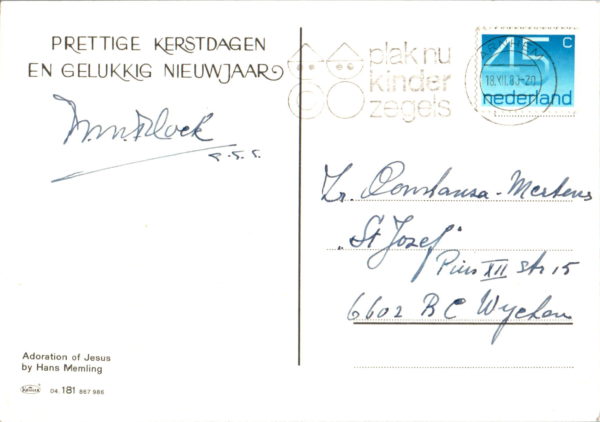 PRETTIGE KERSTDAGEN
EN GELUKKIG NIEUWJAAR
s.s.s.
Adoration of Jesus
by Hans Memling
04.181 867 986
plak nu
kinder
zegels
45 c
18.XII.80-20
nederland
Zr. Constansa-Mertens
"St Jozef"
Pius XII str 15
6602 BC Wychen